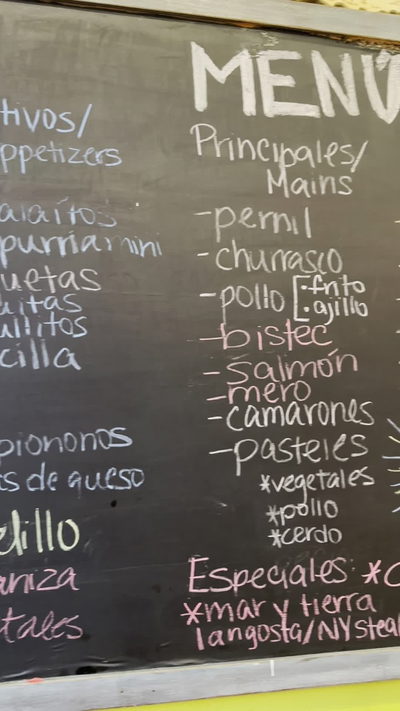 MENÚ
tivos/
ppetizers
alaítos
purria mini
uetas
uitas
ullitos
cilla
pionono​s
s de queso
dillo
aniza
tales
Principales/
Mains
-pernil
-churrasco
-pollo [ • frito
• ajillo
-bistec
-Salmón
-mero
-camarones
-pasteles
*vegetales
*pollo
*cerdo
Especiales: *C
*mar y tierra
langosta/NY steal